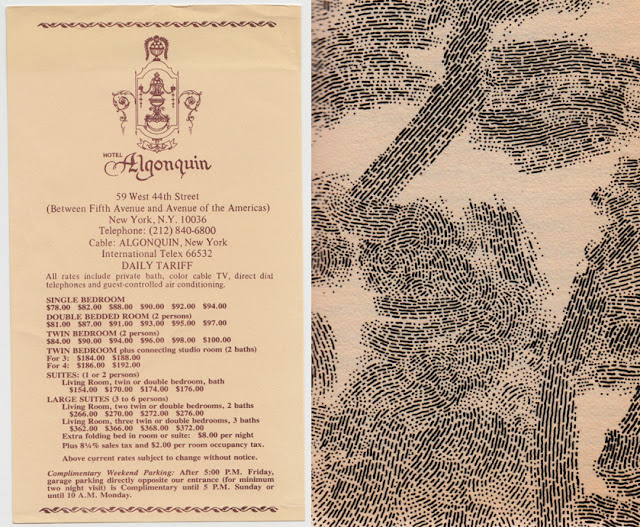 HOTEL
Algonquin
59 West 44th Street
(Between Fifth Avenue and Avenue of the Americas)
New York, N.Y. 10036
Telephone: (212) 840-6800
Cable: ALGONQUIN, New York
International Telex 66532
DAILY TARIFF
All rates include private bath, color cable TV, direct dial
telephones and guest-controlled air conditioning.
SINGLE BEDROOM
$78.00 $82.00 $88.00 $90.00 $92.00 $94.00
DOUBLE BEDDED ROOM (2 persons)
$81.00 $87.00 $91.00 $93.00 $95.00 $97.00
TWIN BEDROOM (2 persons)
$84.00 $90.00 $94.00 $96.00 $98.00 $100.00
TWIN BEDROOM plus connecting studio room (2 baths)
For 3: $184.00 $188.00
For 4: $186.00 $192.00
SUITES: (1 or 2 persons)
Living Room, twin or double bedroom, bath
$154.00 $170.00 $174.00 $176.00
LARGE SUITES (3 to 6 persons)
Living Room, two twin or double bedrooms, 2 baths
$266.00 $270.00 $272.00 $276.00
Living Room, three twin or double bedrooms, 3 baths
$362.00 $366.00 $368.00 $372.00
Extra folding bed in room or suite: $8.00 per night
Plus 8¼% sales tax and $2.00 per room occupancy tax.
Above current rates subject to change without notice.
Complimentary Weekend Parking: After 5:00 P.M. Friday,
garage parking directly opposite our entrance (for minimum
two night visit) is Complimentary until 5 P.M. Sunday or
until 10 A.M. Monday.